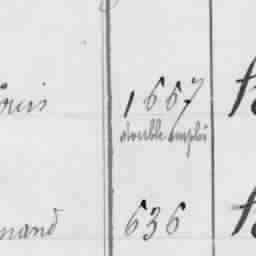 ouis 1667
double emploi
nand 636